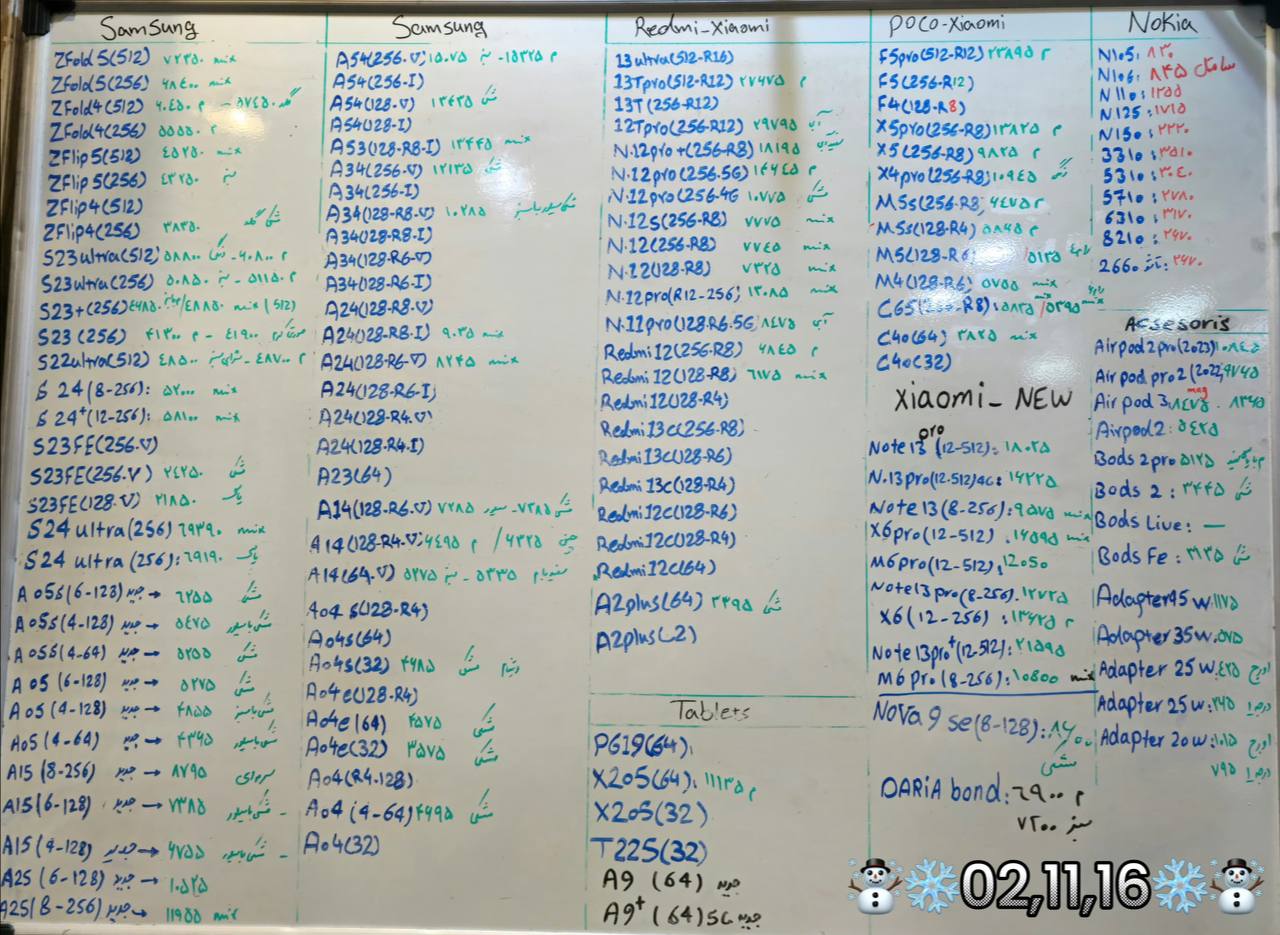 Samsung
ZFold5(512) ۷۲۳۵۰ mix
ZFold5(256) ۶۸۴۰۰ mix
ZFold4(512)
ZFold4(256) ۵۵۵۵۰ م
ZFlip5(512) ۴۵۲۵۰ mix
ZFlip5(256) ۴۳۲۵۰ سبز
ZFlip4(512)
ZFlip4(256) ۳۸۳۵۰
S23ultra(512) ۵۸۸۰۰
S23ultra(256) ۵۰۸۵۰ سبز - ۵۱۱۵۰ م
S23+(256)
S23(256) ۴۱۳۰۰ م - ۴۱۹۰۰
S22ultra(512)
S 24(8-256): ۵۲۰۰۰ mix
S 24+(12-256): ۵۸۱۰۰ mix
S23FE(256.V)
S23FE(256.V) ۲۴۲۵۰
S23FE(128.V) ۲۱۸۵۰
S24 ultra(256) ۶۹۳۹۰ mix
S24 ultra(256): ۶۹۱۹۰
A05s(6-128) جدید → ۶۲۵۵ مشکی
A05s(4-128) جدید → ۵۶۷۵
A05s(4-64) جدید → ۵۲۵۵ مشکی
A05(6-128) جدید → ۵۲۷۵ مشکی
A05(4-128) جدید → ۴۸۵۵
A05(4-64) جدید → ۴۳۶۵
A15(8-256) جدید → ۸۷۹۵ سرمه‌ای
A15(6-128) جدید → ۷۳۸۵
A15(4-128) جدید → ۶۷۵۵
A25(6-128) جدید → ۱۰۵۲۵
A25(8-256) جدید → ۱۱۹۵۵ mix
Samsung
A54(256.V) ۱۵۰۷۵ سبز - ۱۵۳۲۵ م
A54(256-I)
A54(128.V) ۱۳۶۳۵ مشکی
A54(128-I)
A53(128-R8-I) ۱۳۴۴۵ mix
A34(256.V) ۱۲۱۳۵ مشکی
A34(256-I)
A34(128-R8.V) ۱۰۲۸۵
A34(128-R8-I)
A34(128-R6-V)
A34(128-R6-I)
A24(128-R8.V)
A24(128-R8-I) ۹۰۳۵ mix
A24(128-R6-V) ۸۲۴۵ mix
A24(128-R6-I)
A24(128-R4.V)
A24(128-R4-I)
A23(64)
A14(128-R6.V) ۷۲۸۵
A14(128-R4.V) ۶۴۹۵ م / ۶۳۲۵
A14(64.V) ۵۲۷۵ سبز - ۵۳۳۵
A04s(128-R4)
A04s(64)
A04s(32) ۴۶۸۵ مشکی
A04e(128-R4)
A04e(64) ۴۵۷۵ مشکی
A04e(32) ۳۵۷۵ مشکی
A04(R4-128)
A04(4-64) ۴۶۹۵ مشکی
A04(32)
Redmi-Xiaomi
13ultra(512-R16)
13Tpro(512-R12) ۲۷۴۷۵ م
13T(256-R12)
12Tpro(256-R12) ۲۹۷۹۵ آبی
N.12pro+(256-R8) ۱۸۱۹۵
N.12pro(256.5G) ۱۴۶۴۵ م
N.12pro(256-4G) ۱۰۷۷۵ مشکی
N.12s(256-R8) ۷۷۷۵ mix
N.12(256-R8) ۷۷۴۵ mix
N.12(128-R8) ۷۳۲۵ mix
N.12pro(R12-256) ۱۳۰۸۵ mix
N.11pro(128-R6-5G) ۸۴۷۵ آبی
Redmi12(256-R8) ۶۸۴۵ م
Redmi12(128-R8) ۶۱۷۵ mix
Redmi12(128-R4)
Redmi13c(256-R8)
Redmi13c(128-R6)
Redmi13c(128-R4)
Redmi12c(128-R6)
Redmi12c(128-R4)
Redmi12c(64)
A2plus(64) ۳۳۹۵ مشکی
A2plus(32)
Tablets
PG19(64):
X205(64): ۱۱۱۳۵ م
X205(32)
T225(32)
A9 (64) جدید
A9+ (64)5G جدید
POCO-Xiaomi
F5pro(512-R12) ۲۳۸۹۵ م
F5(256-R12)
F4(128-R8)
X5pro(256-R8) ۱۳۸۲۵ م
X5(256-R8) ۹۸۲۵ م
X4pro(256-R8) ۱۰۹۴۵
M5s(256-R8) ۶۴۷۵ م
M5s(128-R4) ۵۸۴۵ م
M5(128-R6)
M4(128-R6) ۵۷۵۵ mix
C65(256-R8): ۵۸۲۵ / ۵۳۹۵ mix
C40(64) ۳۸۲۵ mix
C40(32)
Xiaomi- NEW
Note13 pro (12-512): ۱۸۰۲۵
N.13pro(12-512)4G: ۱۴۲۲۵
Note13(8-256): ۹۵۷۵ mix
X6pro(12-512): ۱۷۵۹۵ mix
M6pro(12-512): ۱۲۰۵۰
Note13pro(8-256): ۱۲۷۲۵
X6(12-256): ۱۳۶۲۵ م
Note13pro+(12-512): ۲۱۵۹۵
M6pro(8-256): ۱۰۸۰۰ mix
Nova 9 se(8-128): ۸۶۰۰
مشکی
DARIA bond: ۶۹۰۰ م
۷۲۰۰ سبز
Nokia
N105: ۸۳۰
N106: ۸۴۵
N110: ۱۲۵۵
N125: ۱۷۱۵
N150: ۲۲۲۰
3310: ۳۵۱۰
5310: ۳۰۴۰
5710: ۲۷۸۰
6310: ۳۱۷۰
8210: ۲۶۷۰
2660: ۳۶۷۰
Acsesoris
Airpod2pro(2023)
Airpod pro2(2022) ۹۷۴۵
Airpod3: ۸۴۷۵ mag ۸۳۴۵
Airpod2: ۵۴۲۵
Bods 2pro ۵۱۲۵
Bods 2: ۳۴۴۵ مشکی
Bods Live: —
Bods Fe: ۳۱۳۵ مشکی
Adapter45w: ۱۱۷۵
Adapter 35w: ۵۷۵
Adapter 25w: ۴۲۵
Adapter 25w: ۲۴۵
Adapter 20w: ۱۰۱۵
۷۹۵
02,11,16